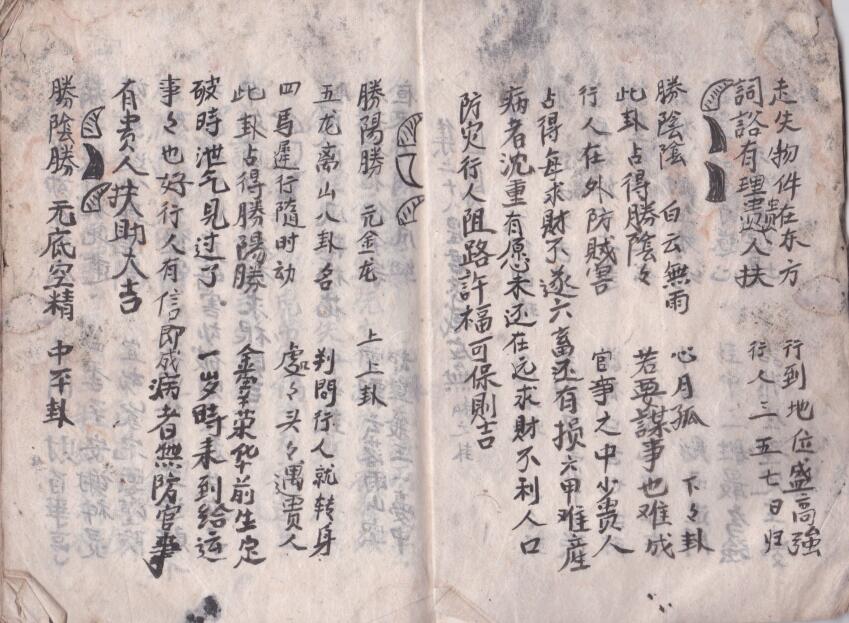 走失物件在东方 行到地位盛高強
詞訟有理貴人扶 行人三五七日归
勝陰陰 白云無雨 心月孤 下々卦
此卦占得勝陰々 若要謀事也难成
行人在外防賊害 官事之中少貴人
占得每求財不遂六畜还有损六甲难產
病者沈重有愿未还在远求財不利人口
防灾行人阻路許福可保則吉
勝陽勝 元金龙 上上卦
五龙离山八卦名 判問行人就转身
四馬遲行隨时动 處々头々遇贵人
此卦占得勝陽勝 金榮华前生定
破時泄气見过了 一岁時来到给运
事々也好行人有信即成病者無防官事
有貴人扶助大吉
勝陰勝 元底空精 中平卦